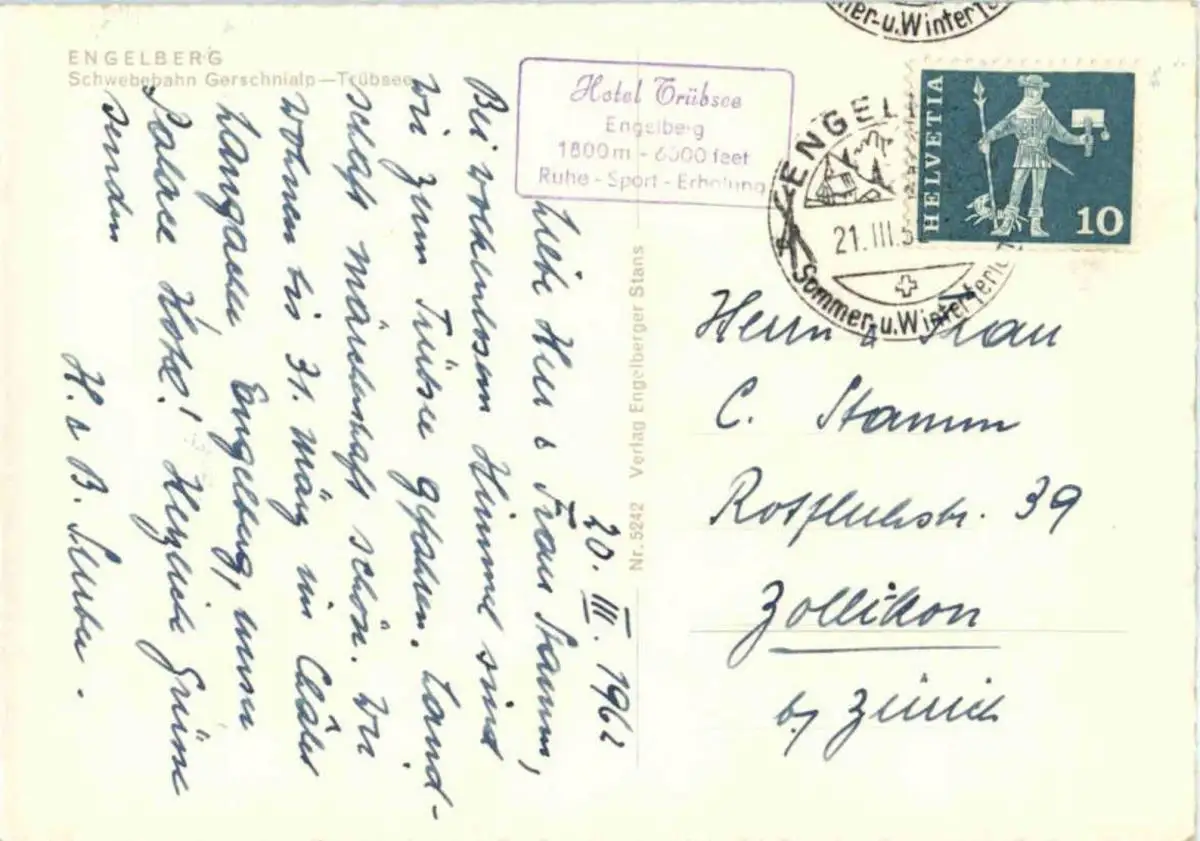 ENGELBERG
Schwebebahn Gerschnialp—Trübsee
Hotel Trübsee
Engelberg
1800 m - 6000 feet
Ruhe - Sport - Erholung
er- u. Winter
ENGEL
21. III.
Sommer- u. Winter
HELVETIA
10
20. III. 1962
Liebe Herr & Frau Stamm,
Bei wolkenlosem Himmel sind
wir zum Trübsee gefahren. Land-
schaft märchenhaft schön. Wir
wohnen bis 31. März im Châlet
Engelberg,
Hotel! Herzliche Grüsse
senden
H. & B.
Nr. 5242 Verlag Engelberger Stans
Herrn & Frau
C. Stamm
Rotfluhstr. 39
Zollikon
by Zürich